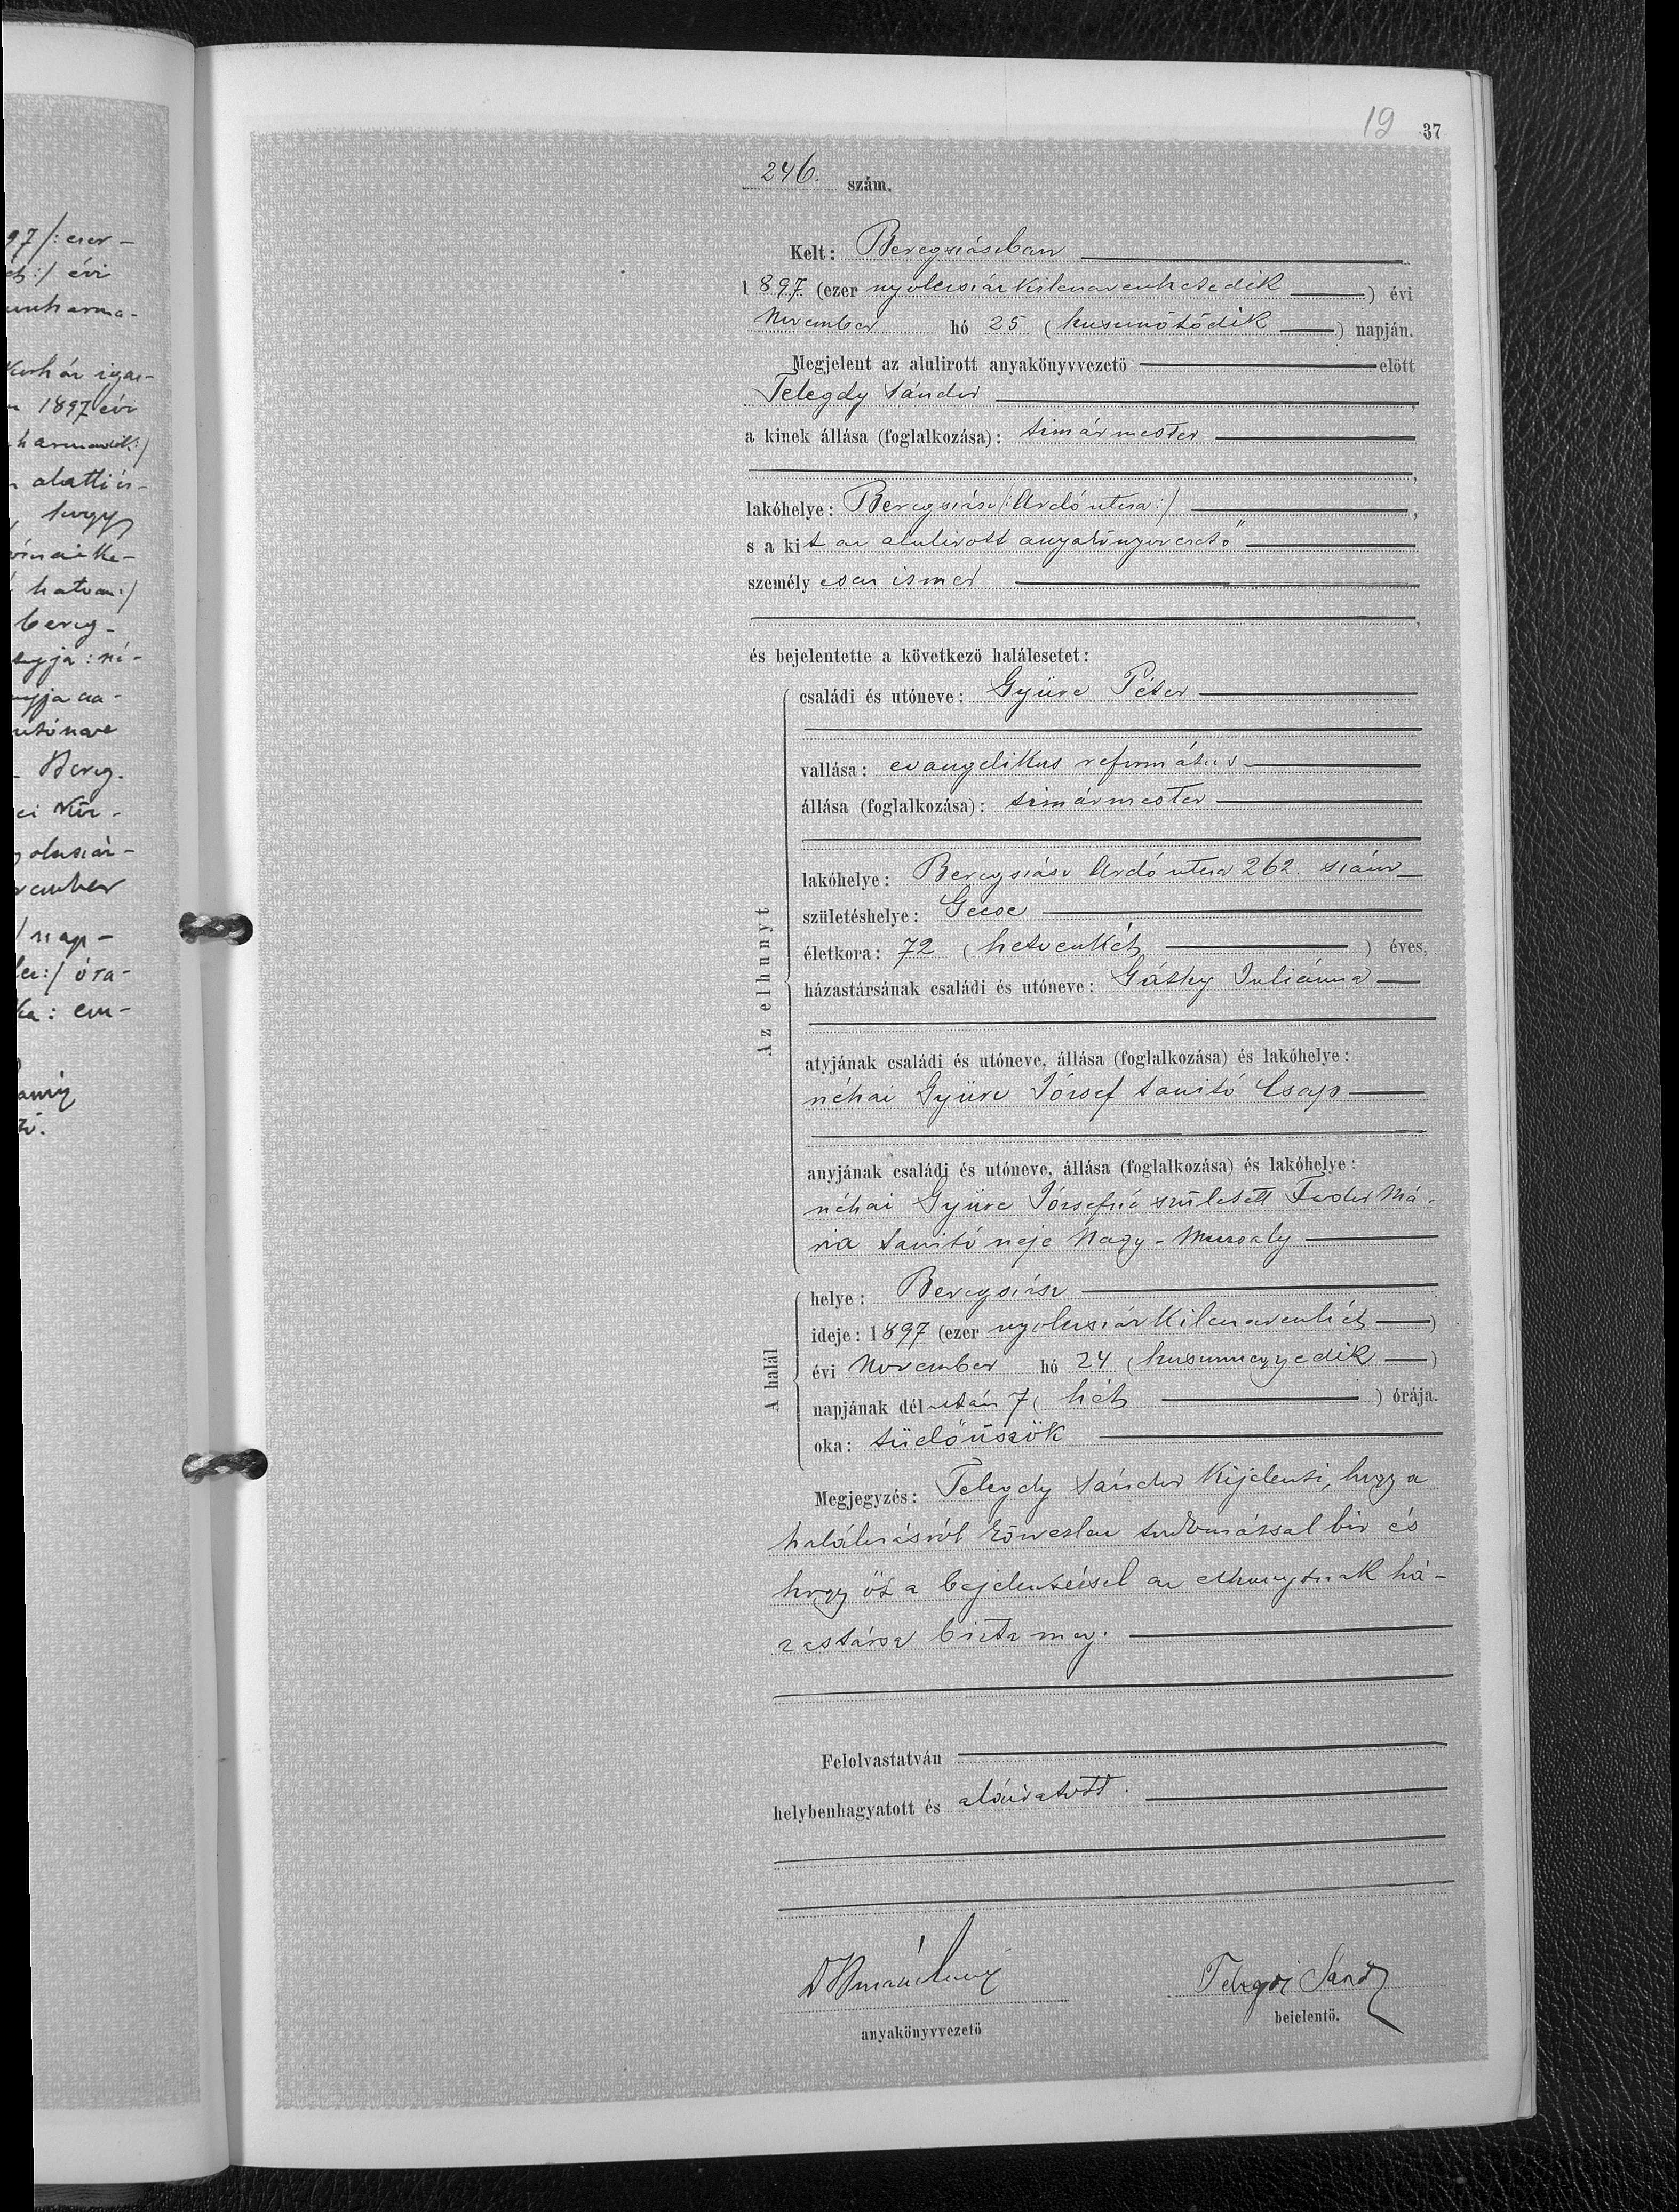 97/: ezer-
évi
harma-
1897 évi
alatti is-
hogy
hatvan:/
bereg-
Bereg.
nap-
óra-
19 37
246. szám.
Kelt: Beregszászban
1897 (ezer nyolczszázkilenczvenhetedik) évi
November hó 25 (huszonötödik) napján.
Megjelent az alulirott anyakönyvvezető előtt
Telegdy Sándor
a kinek állása (foglalkozása): timármester
lakóhelye: Beregszász /: Ardó utcza :/
s a kit az alulirott anyakönyvvezető
személyesen ismer
és bejelentette a következő halálesetet:
Az elhunyt
családi és utóneve: Gyüre Péter
vallása: evangelikus református
állása (foglalkozása): timármester
lakóhelye: Beregszász Ardó utcza 262. szám
születéshelye: Gecse
életkora: 72 (hetvenkét) éves,
házastársának családi és utóneve: Gáthy Juliánna
atyjának családi és utóneve, állása (foglalkozása) és lakóhelye:
néhai Gyüre József tanitó Csap
anyjának családi és utóneve, állása (foglalkozása) és lakóhelye:
néhai Gyüre Józsefné született Fodor Má-
ria tanitó neje Nagy-Muzsaly
A halál
helye: Beregszász
ideje: 1897 (ezer nyolczszázkilenczvenhét)
évi November hó 24 (huszonnegyedik)
napjának délután 7 (hét) órája.
oka: tüdőüszök
Megjegyzés: Telegdy Sándor kijelenti, hogy a
halálozásról közvetlen tudomással bir és
hogy őt a bejelentéssel az elhunytnak há-
zastársa bizta meg.
Felolvastatván
helybenhagyatott és aláiratott.
Telegdi Sándor
anyakönyvvezető
bejelentő.